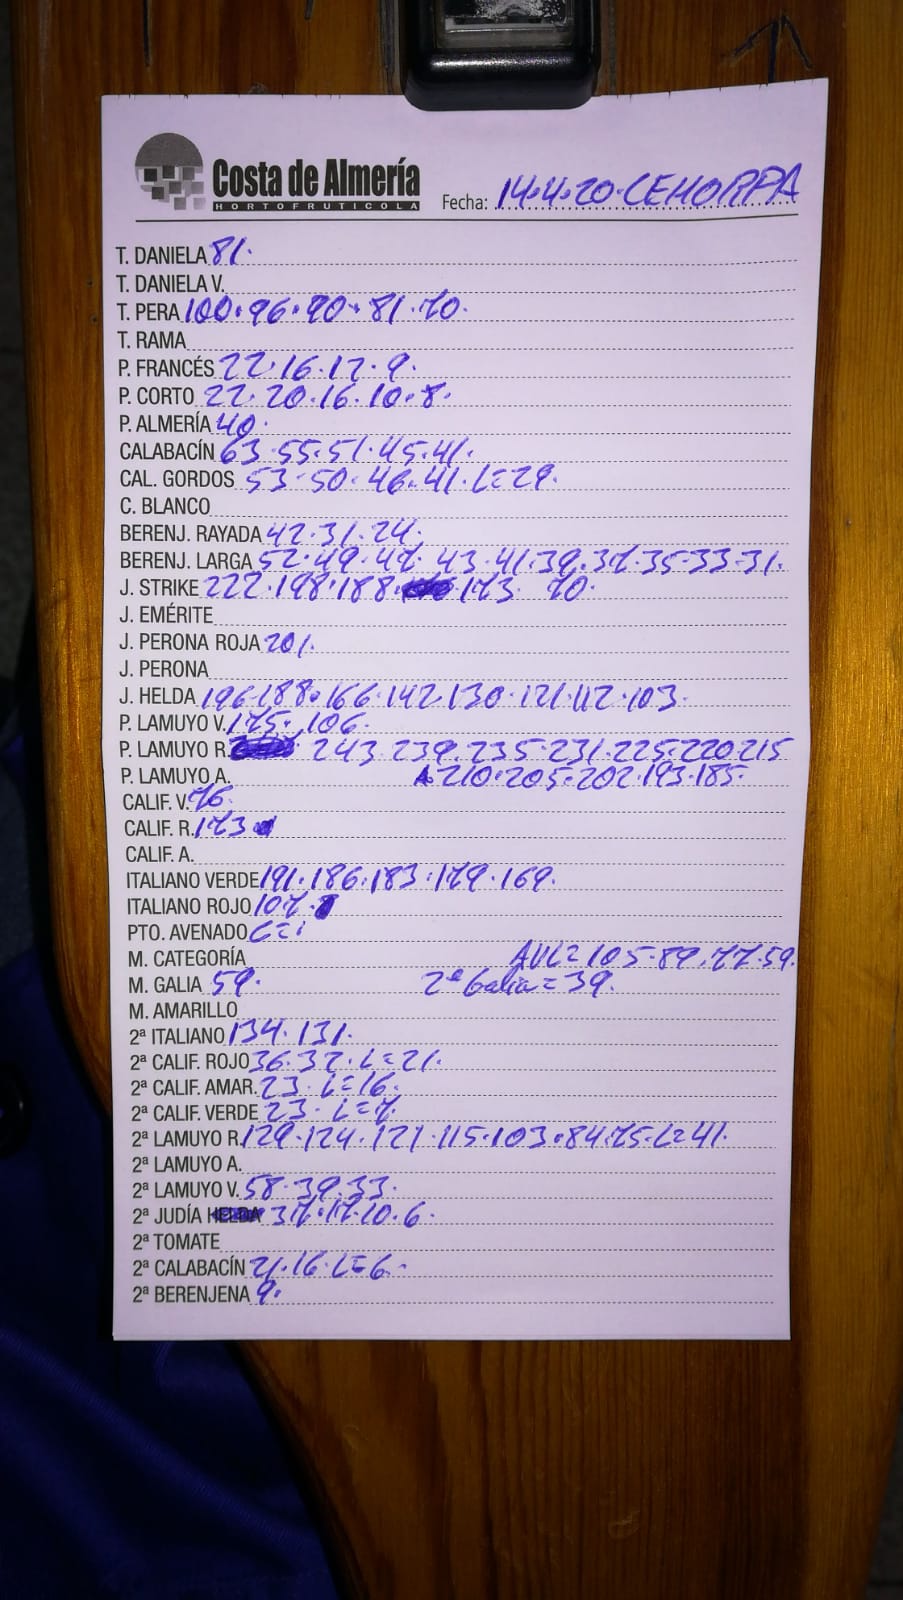 Costa de Almería
HORTOFRUTICOLA
Fecha: 14.4.20.CEHORPA
T. DANIELA 81.
T. DANIELA V.
T. PERA 100.96.90.81.70.
T. RAMA
P. FRANCÉS 22.16.12.9.
P. CORTO 22.20.16.10.8.
P. ALMERÍA 40.
CALABACÍN 63.55.51.45.41.
CAL. GORDOS 53.50.46.41.L=29.
C. BLANCO
BERENJ. RAYADA 42.31.24.
BERENJ. LARGA 52.49.47.43.41.39.37.35.33.31.
J. STRIKE 222.198.188. 173. 70.
J. EMÉRITE
J. PERONA ROJA 201.
J. PERONA
J. HELDA 196.188.166.142.130.121.112.103.
P. LAMUYO V. 175. 106.
P. LAMUYO R. 243.239.235.231.225.220.215
P. LAMUYO A. 210.205.202.193.185.
CALIF. V. 76.
CALIF. R. 173
CALIF. A.
ITALIANO VERDE 191.186.183.179.169.
ITALIANO ROJO 107.
PTO. AVENADO
M. CATEGORÍA AVL=105.89.77.59.
M. GALIA 59. 2ª Galia=39.
M. AMARILLO
2ª ITALIANO 134.131.
2ª CALIF. ROJO 36.32.L=21.
2ª CALIF. AMAR. 23.L=16.
2ª CALIF. VERDE 23.L=7.
2ª LAMUYO R. 129.124.121.115.103.84.75.L=41.
2ª LAMUYO A.
2ª LAMUYO V. 58.39.33.
2ª JUDÍA 37.17.10.6.
2ª TOMATE
2ª CALABACÍN 21.16.L=6.
2ª BERENJENA 9.